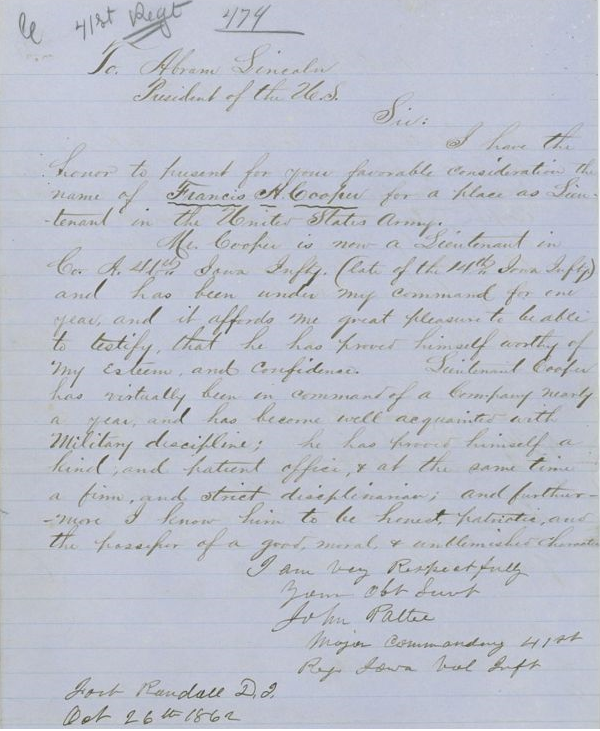 41st Regt 474
To. Abram Lincoln
President of the U.S.
Sir:
I have the
honor to present for your favorable consideration the
name of Francis H. Cooper for a place as Lieu-
-tenant in the United States Army.
Mr. Cooper is now a Lieutenant in
Co. A. 41st Iowa Infty. (late of the 14th Iowa Infty)
and has been under my command for one
year, and it affords me great pleasure to be able
to testify, that he has proved himself worthy of
my esteem, and confidence. Lieutenant Cooper
has virtually been in command of a Company nearly
a year, and has become well acquainted with
Military discipline; he has proved himself a
kind, and patient officer, & at the same time
a firm, and strict disciplinarian; and further-
-more I know him to be honest, patriotic, and
the posseser of a good, moral, & unblemished character
I am very Respectfully
Your Obt Servt
John Pattee
Major Commanding 41st
Reg. Iowa Vol Inft
Fort Randall D.T.
Oct 26th 1862